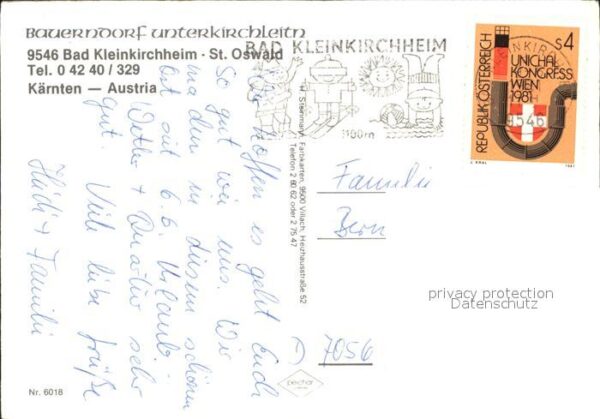 Bauerndorf unterkirchleitn
9546 Bad Kleinkirchheim · St. Oswald
Tel. 0 42 40 / 329
Kärnten — Austria
BAD KLEINKIRCHHEIM
1100m
S4
REPUBLIK ÖSTERREICH
UNICHAL
KONGRESS
WIEN
1981
9546
L. KRAL
1981
Wir hoffen es geht Euch
so gut wie uns. Wir
machen in diesem schönen
Ort seit 6.6. Urlaub.
Wetter + Quartier sehr
gut. Viele liebe Grüße
Heidi + Familie
H. Steinmayr, Farbkarten, 9500 Villach, Heizhausstraße 52
Telefon 2 60 62 oder 2 75 47
Familie
Bern
D 7056
privacy protection
Datenschutz
pelcher
Nr. 6018